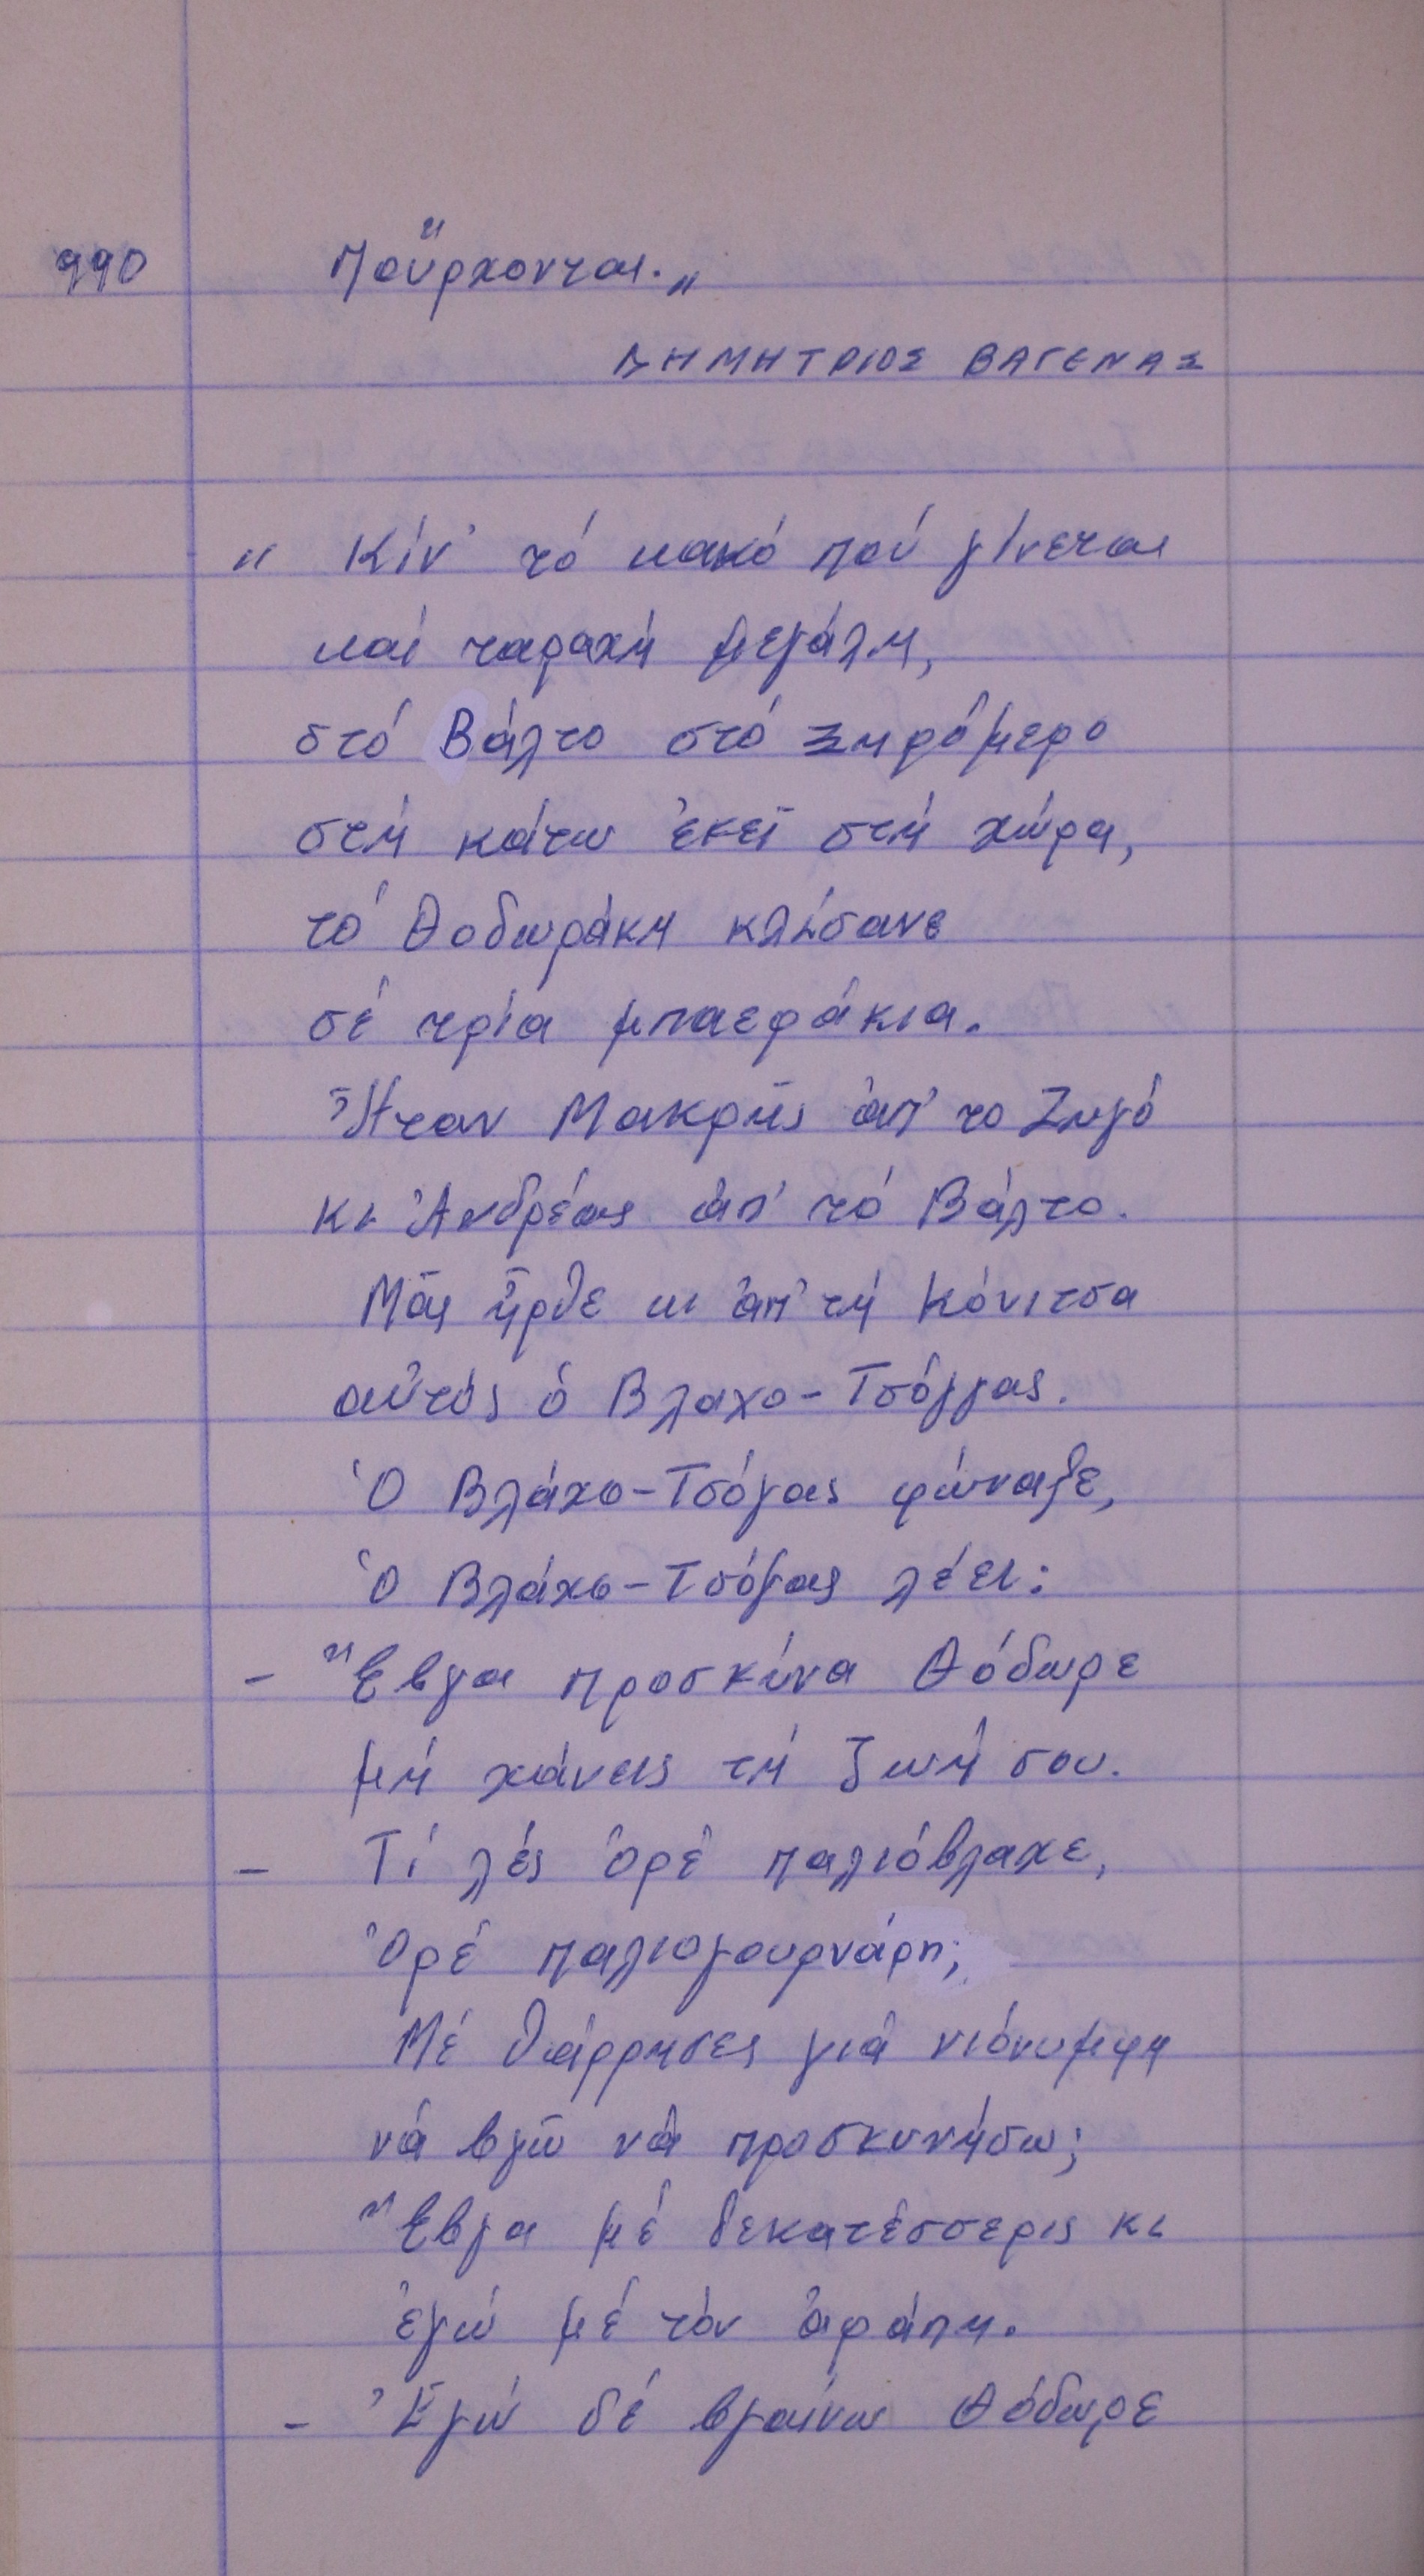 990 Ποὔρχονται.„
ΔΗΜΗΤΡΙΟΣ ΒΑΓΕΝΑΣ
„ Κίν' τό κακό πού γίνεται
καί ταραχή μεγάλη,
στό Βάλτο στό Ξηρόμερο
στή κάτω ἐκεῖ στή χώρα,
τό Θοδωράκη κλίσανε
σέ τρία μπαεράκια.
Ἦταν Μακρῆς ἀπ' το Ζυγό
κι Ἀνδρέας ἀπ' τό Βάλτο.
Μᾶς ἦρθε κι ἀπ' τή Κόνιτσα
αὐτός ὁ Βλαχο-Τσόγγας.
Ὁ Βλάχο-Τσόγας φώναξε,
Ὁ Βλάχο-Τσόγας λέει:
- Ἔβγα προσκύνα Θόδωρε
μή χάνεις τή ζωή σου.
- Τί λές ὀρέ παλιόβλαχε,
Ὀρέ παλιογουρνάρη;
Μέ θάρρησες γιά νιόνυμφη
νά βγῶ νά προσκυνήσω;
Ἔβγα μέ δεκατέσσερις κι
ἐγώ μέ τόν ἀράπη.
- Ἐγώ δέ βγαίνω Θόδωρε